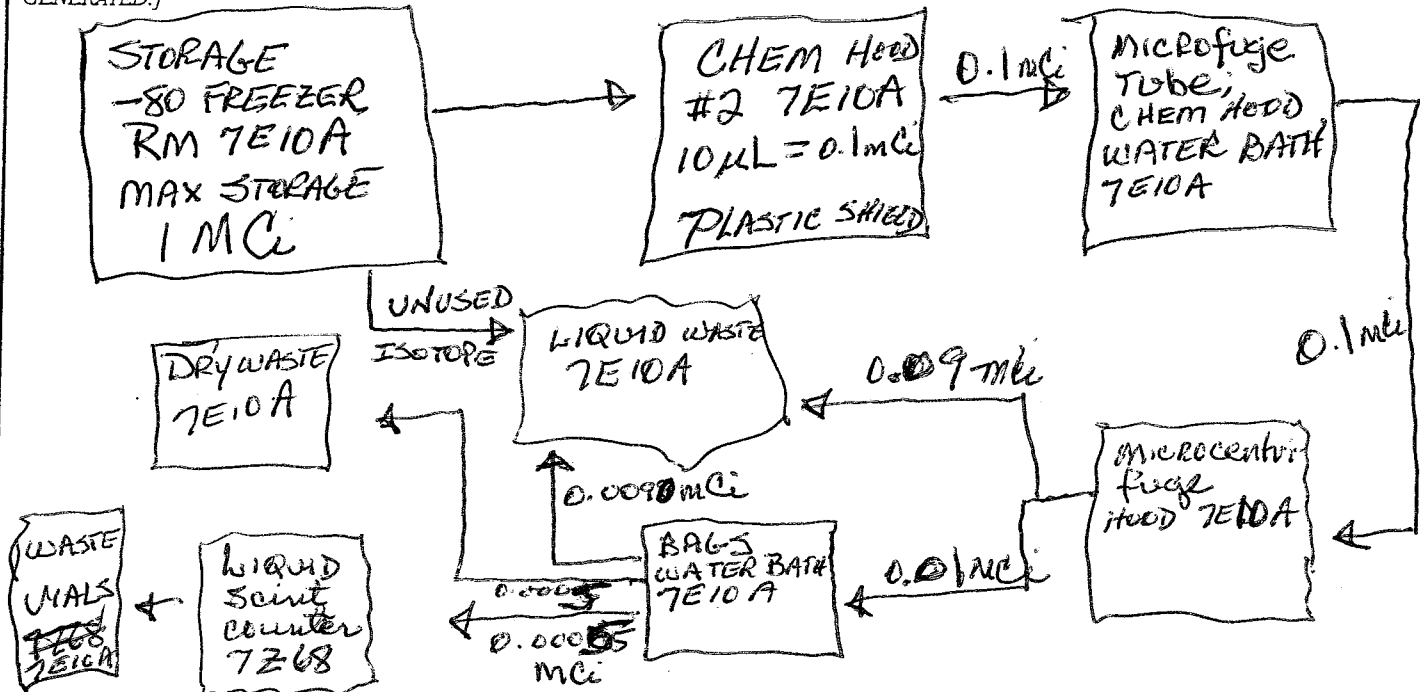 GENERATED.)
STORAGE
-80 FREEZER
RM 7E10A
MAX STORAGE
1 MCi
CHEM HOOD
#2 7E10A
10µL = 0.1mCi
PLASTIC SHIELD
0.1 mCi
Microfuge
Tube;
CHEM HOOD
WATER BATH
7E10A
0.1 mCi
UNUSED
ISOTOPE
LIQUID WASTE
7E10A
DRY WASTE
7E10A
0.09 mCi
MICROCENTRI-
fuge
HOOD 7E10A
0.0090 mCi
0.01 MCi
BAGS
WATER BATH
7E10A
0.0005
0.00055
MCi
LIQUID
Scint
counter
7Z68
WASTE
VIALS
7Z68
7E10A